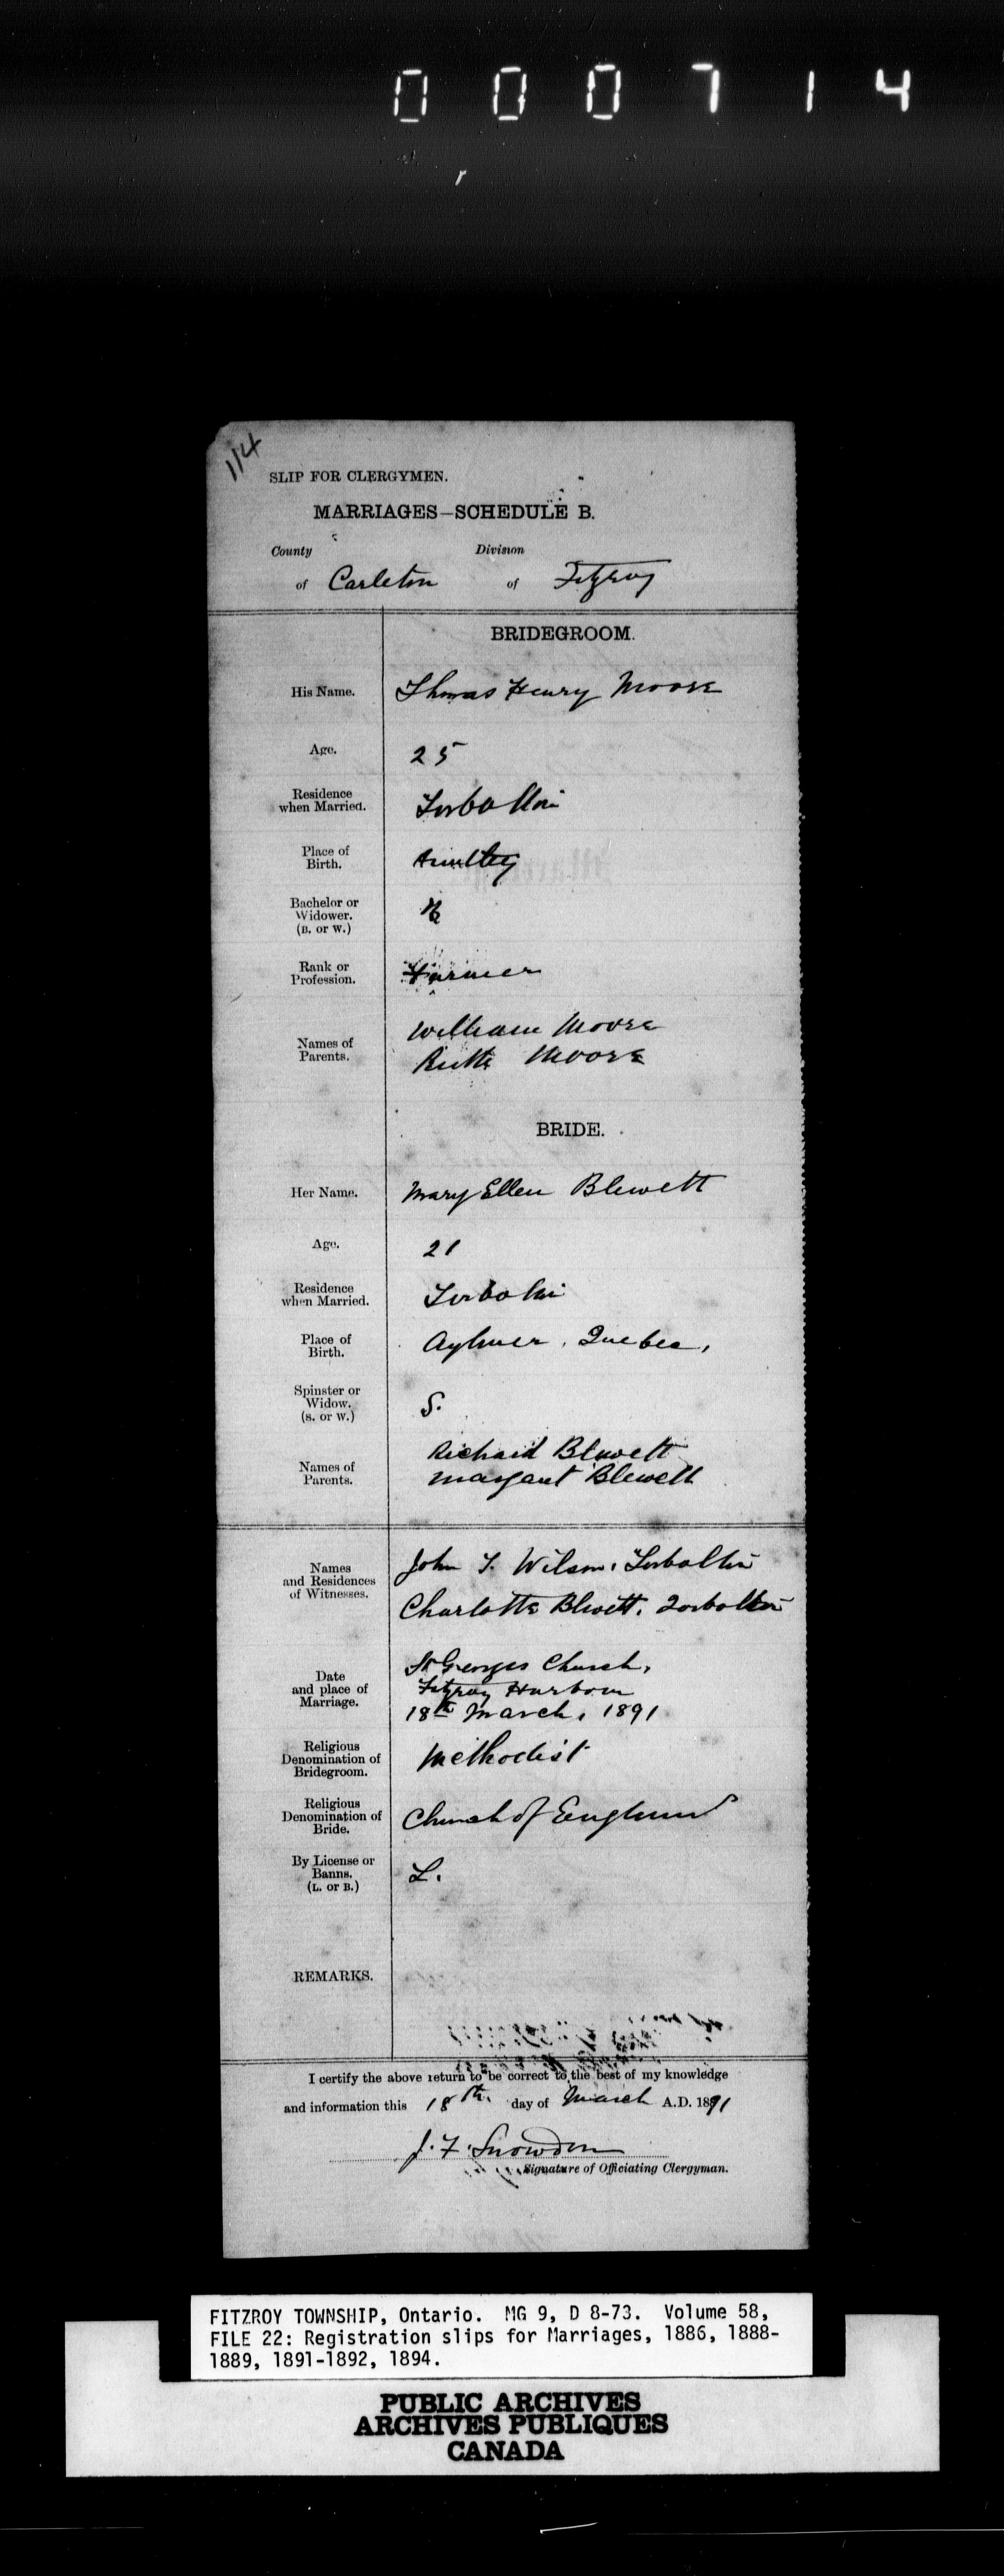 000714
114
SLIP FOR CLERGYMEN.
MARRIAGES-SCHEDULE B.
County Division
of Carleton of Fitzroy
BRIDEGROOM.
His Name. Thomas Henry Moore
Age. 25
Residence
when Married. Torbolton
Place of
Birth. Huntley
Bachelor or
Widower.
(B. or W.) B
Rank or
Profession. Farmer
Names of
Parents. William Moore
Ruth Moore
BRIDE.
Her Name. Mary Ellen Blewett
Age. 21
Residence
when Married. Torbolton
Place of
Birth. Aylmer, Quebec,
Spinster or
Widow.
(S. or W.) S.
Names of
Parents. Richard Blewett
Margaret Blewett
Names
and Residences
of Witnesses. John T. Wilson, Torbolton
Charlotte Blewett, Torbolton
Date
and place of
Marriage. St Georges Church,
Fitzroy Harbour
18th March, 1891
Religious
Denomination of
Bridegroom. Methodist
Religious
Denomination of
Bride. Church of England
By License or
Banns.
(L. or B.) L.
REMARKS.
I certify the above return to be correct to the best of my knowledge
and information this 18th. day of March A.D. 1891
J. F. Snowdon
Signature of Officiating Clergyman.
FITZROY TOWNSHIP, Ontario. MG 9, D 8-73. Volume 58,
FILE 22: Registration slips for Marriages, 1886, 1888-
1889, 1891-1892, 1894.
PUBLIC ARCHIVES
ARCHIVES PUBLIQUES
CANADA